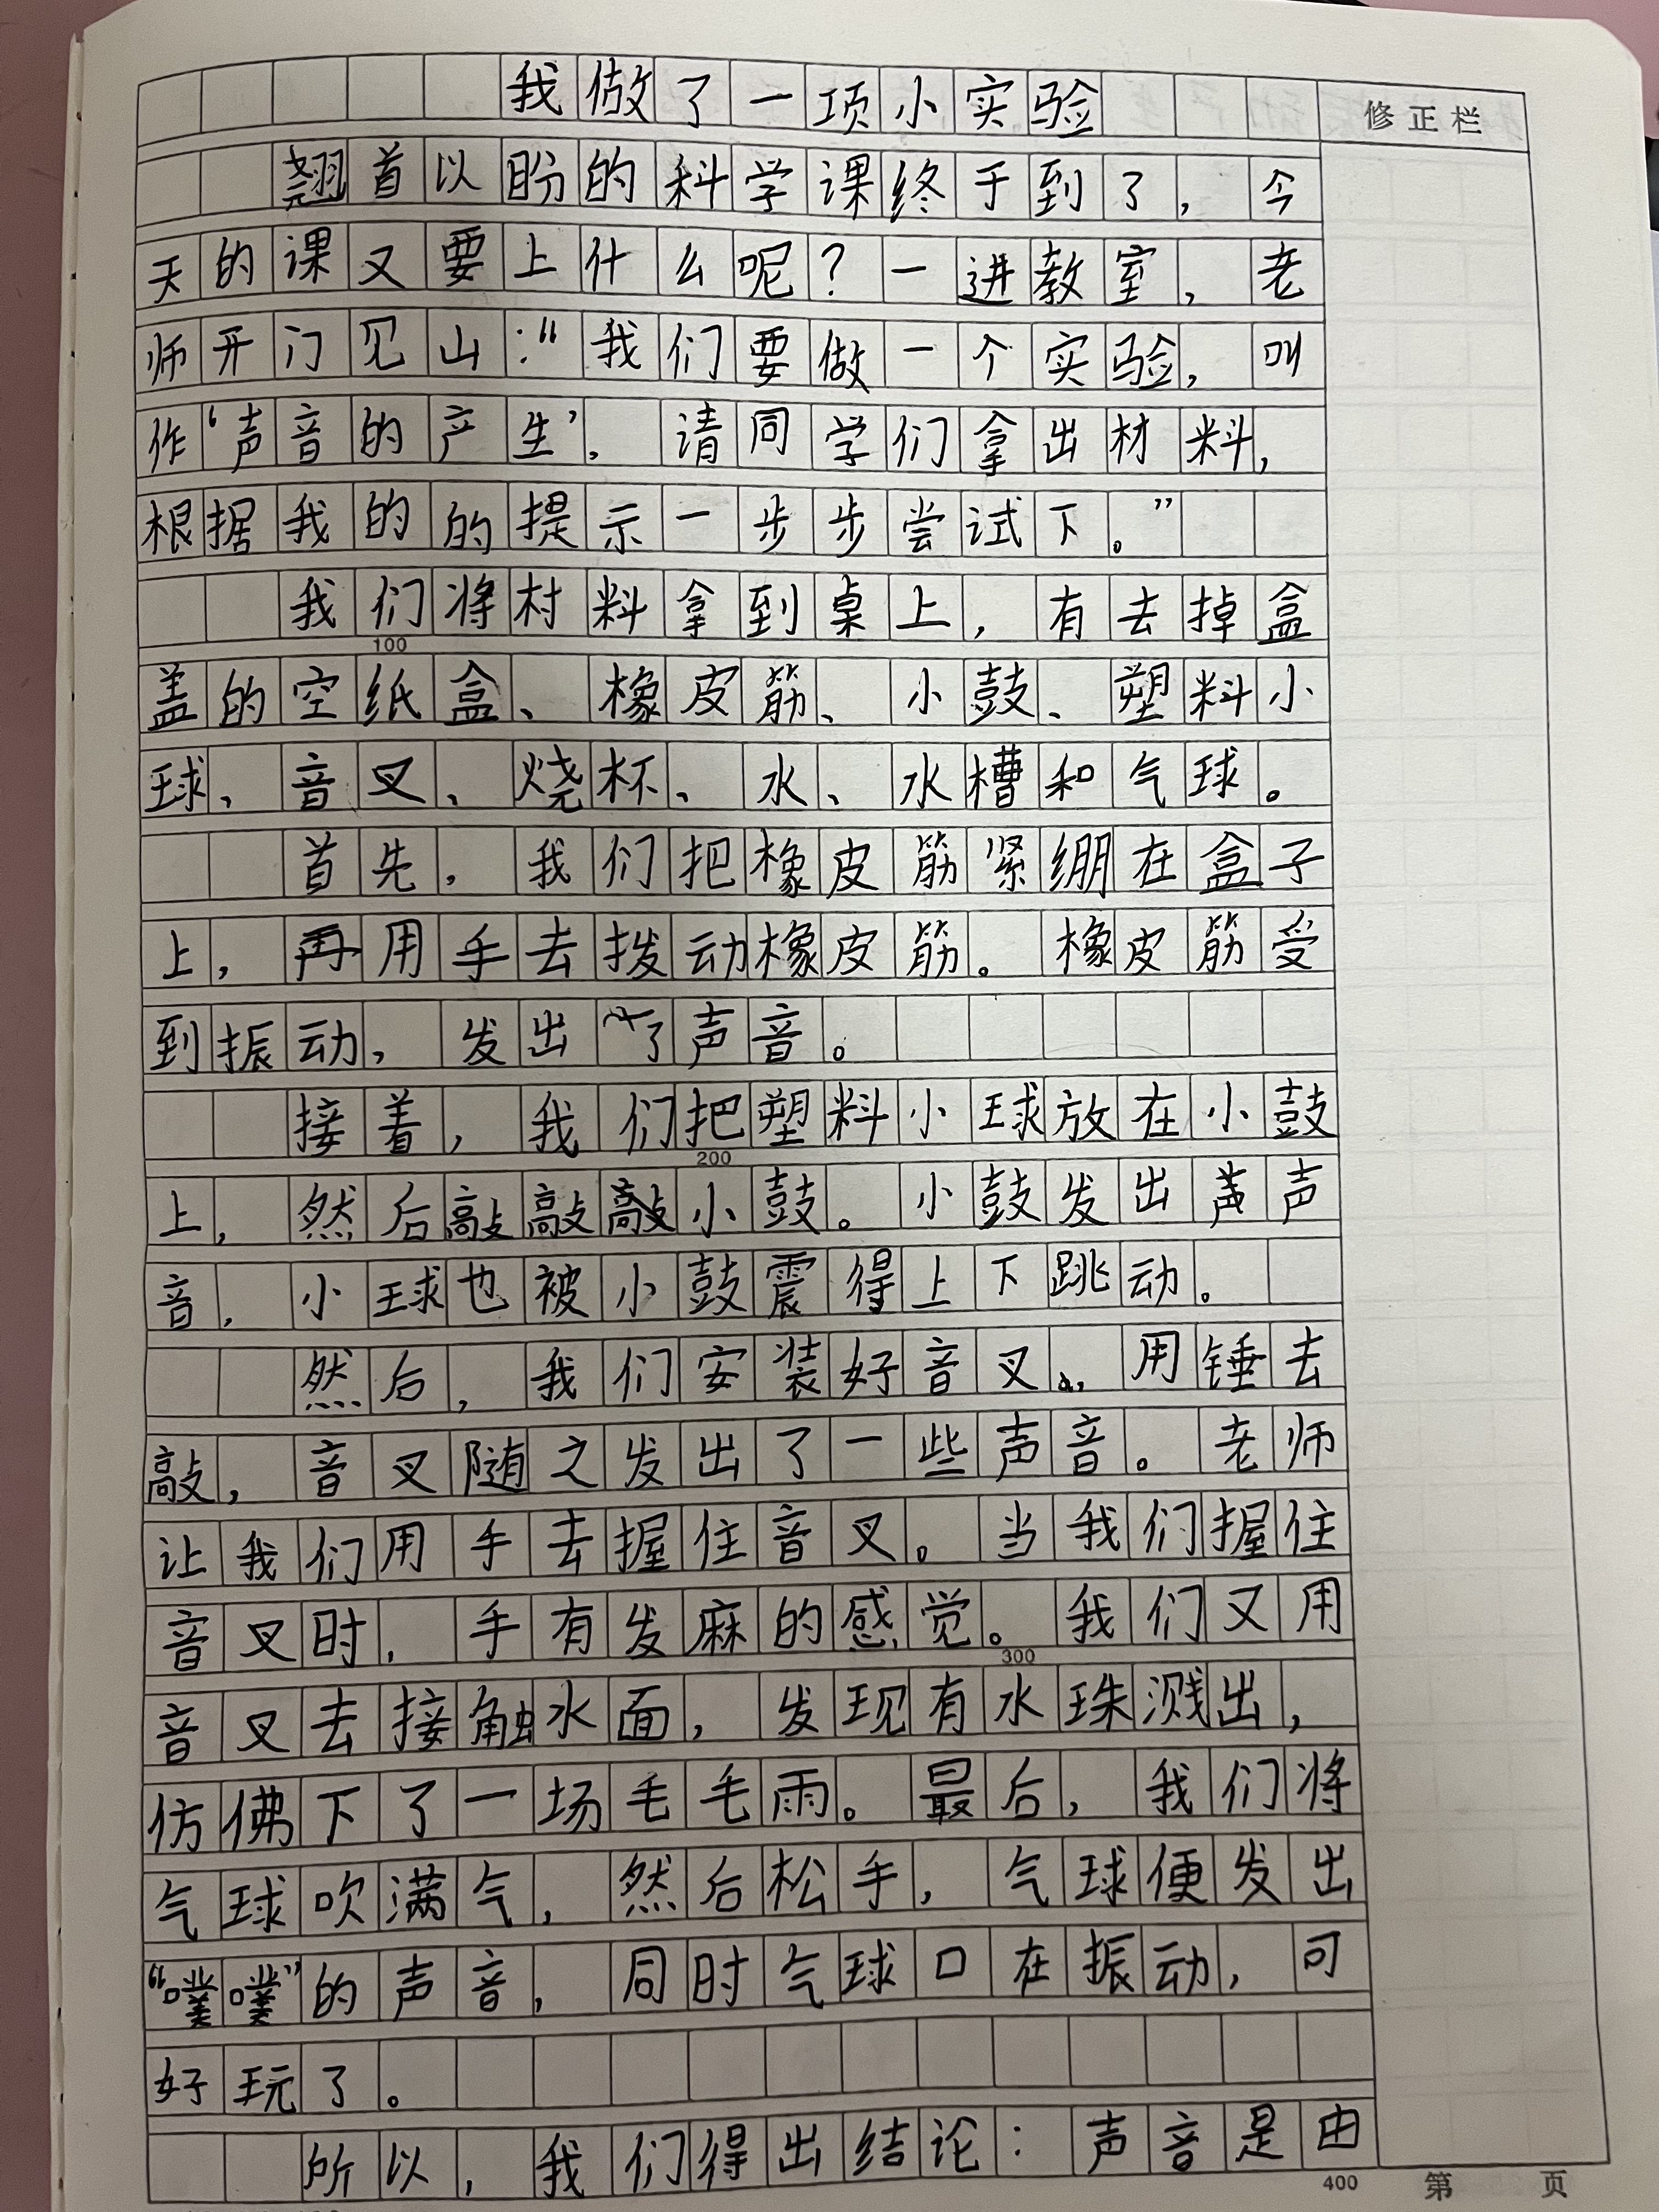 我做了一项小实验
修正栏
翘首以盼的科学课终于到了，今
天的课又要上什么呢？一进教室，老
师开门见山：“我们要做一个实验，叫
作‘声音的产生’，请同学们拿出材料，
根据我的的提示一步步尝试下。”
我们将村料拿到桌上，有去掉盒
100
盖的空纸盒、橡皮筋、小鼓、塑料小
球、音叉、烧杯、水、水槽和气球。
首先，我们把橡皮筋紧绷在盒子
上，再用手去拨动橡皮筋。橡皮筋受
到振动，发出了声音。
接着，我们把塑料小球放在小鼓
200
上，然后敲敲敲小鼓。小鼓发出声声
音，小球也被小鼓震得上下跳动。
然后，我们安装好音叉，用锤去
敲，音叉随之发出了一些声音。老师
让我们用手去握住音叉。当我们握住
音叉时，手有发麻的感觉。我们又用
300
音叉去接触水面，发现有水珠溅出，
仿佛下了一场毛毛雨。最后，我们将
气球吹满气，然后松手，气球便发出
“噗噗”的声音，同时气球口在振动，可
好玩了。
所以，我们得出结论：声音是由
400 第 页